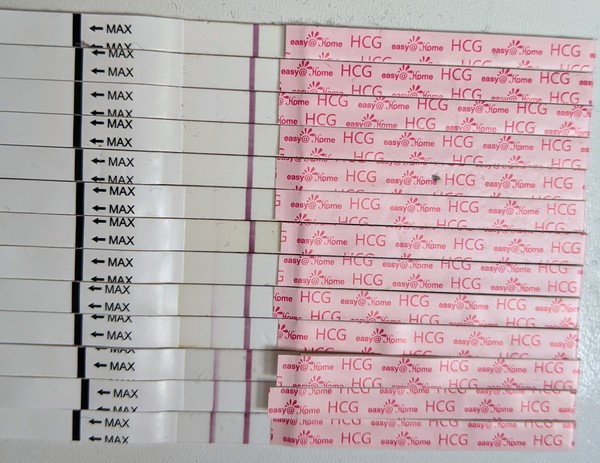 ← MAX easy@Home HCG easy@Home HCG easy@Home HCG
← MAX easy@Home HCG easy@Home HCG easy@Home HCG
← MAX HCG easy@Home HCG easy@Home HCG
← MAX easy@Home HCG easy@Home HCG easy@Home HCG
← MAX easy@Home HCG easy@Home HCG easy@Home HCG
← MAX easy@Home HCG easy@Home HCG easy@Home
← MAX easy@Home HCG easy@Home HCG easy@Home HCG
← MAX easy@Home HCG easy@Home HCG easy@Home HCG
← MAX HCG easy@Home HCG easy@Home HCG easy@Home
← MAX HCG easy@Home HCG easy@Home HCG easy@Home
← MAX easy@Home HCG easy@Home HCG easy@Home HCG
← MAX easy@Home HCG easy@Home HCG easy@Home HCG
← MAX easy@Home HCG easy@Home HCG easy@Home HCG
← MAX